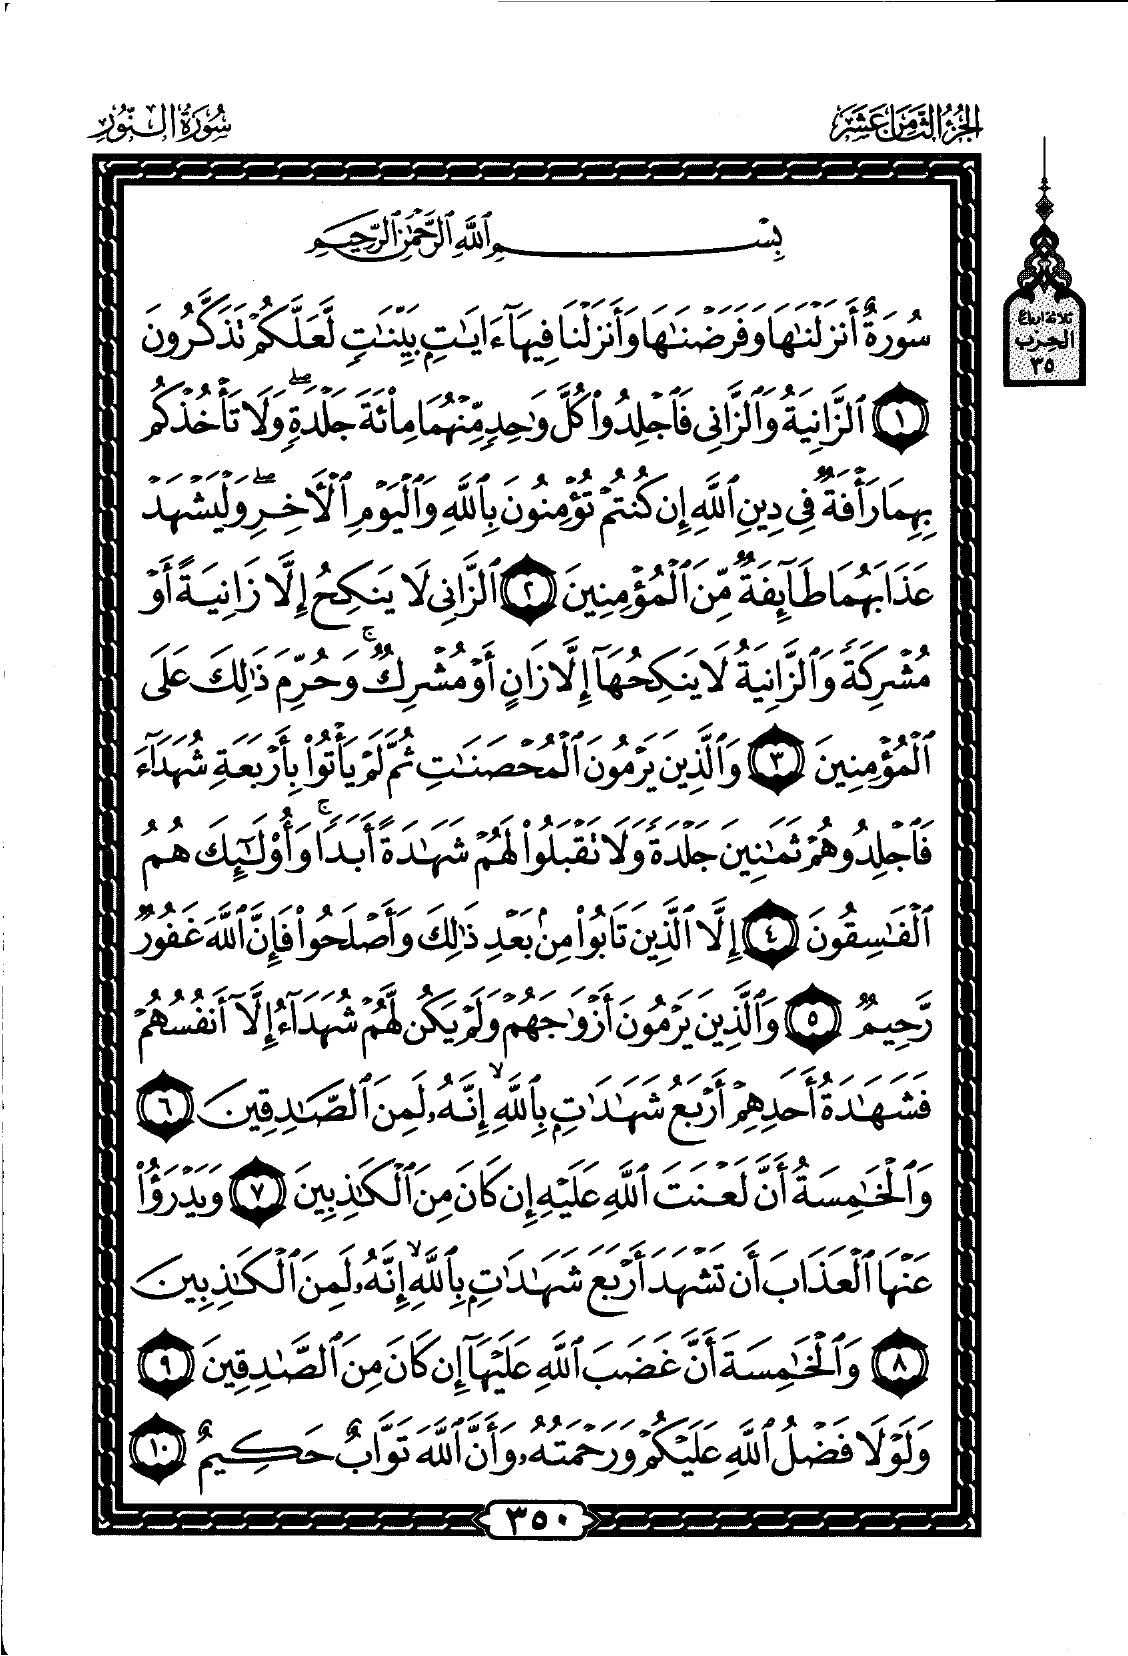 الجزء الثامن عشر
سورة النور
ثلاثة أرباع
الحزب
٣٥
بِسْمِ ٱللَّهِ ٱلرَّحْمَٰنِ ٱلرَّحِيمِ
سُورَةٌ أَنزَلْنَٰهَا وَفَرَضْنَٰهَا وَأَنزَلْنَا فِيهَآ ءَايَٰتٍۭ بَيِّنَٰتٍ لَّعَلَّكُمْ تَذَكَّرُونَ
١ ٱلزَّانِيَةُ وَٱلزَّانِى فَٱجْلِدُوا۟ كُلَّ وَٰحِدٍ مِّنْهُمَا مِا۟ئَةَ جَلْدَةٍ ۖ وَلَا تَأْخُذْكُم
بِهِمَا رَأْفَةٌ فِى دِينِ ٱللَّهِ إِن كُنتُمْ تُؤْمِنُونَ بِٱللَّهِ وَٱلْيَوْمِ ٱلْأَخِرِ ۖ وَلْيَشْهَدْ
عَذَابَهُمَا طَآئِفَةٌ مِّنَ ٱلْمُؤْمِنِينَ ٢ ٱلزَّانِى لَا يَنكِحُ إِلَّا زَانِيَةً أَوْ
مُشْرِكَةً وَٱلزَّانِيَةُ لَا يَنكِحُهَآ إِلَّا زَانٍ أَوْ مُشْرِكٌ ۚ وَحُرِّمَ ذَٰلِكَ عَلَى
ٱلْمُؤْمِنِينَ ٣ وَٱلَّذِينَ يَرْمُونَ ٱلْمُحْصَنَٰتِ ثُمَّ لَمْ يَأْتُوا۟ بِأَرْبَعَةِ شُهَدَآءَ
فَٱجْلِدُوهُمْ ثَمَٰنِينَ جَلْدَةً وَلَا تَقْبَلُوا۟ لَهُمْ شَهَٰدَةً أَبَدًا ۚ وَأُو۟لَٰٓئِكَ هُمُ
ٱلْفَٰسِقُونَ ٤ إِلَّا ٱلَّذِينَ تَابُوا۟ مِنۢ بَعْدِ ذَٰلِكَ وَأَصْلَحُوا۟ فَإِنَّ ٱللَّهَ غَفُورٌ
رَّحِيمٌ ٥ وَٱلَّذِينَ يَرْمُونَ أَزْوَٰجَهُمْ وَلَمْ يَكُن لَّهُمْ شُهَدَآءُ إِلَّآ أَنفُسُهُمْ
فَشَهَٰدَةُ أَحَدِهِمْ أَرْبَعُ شَهَٰدَٰتٍۭ بِٱللَّهِ ۙ إِنَّهُۥ لَمِنَ ٱلصَّٰدِقِينَ ٦
وَٱلْخَٰمِسَةُ أَنَّ لَعْنَتَ ٱللَّهِ عَلَيْهِ إِن كَانَ مِنَ ٱلْكَٰذِبِينَ ٧ وَيَدْرَؤُا۟
عَنْهَا ٱلْعَذَابَ أَن تَشْهَدَ أَرْبَعَ شَهَٰدَٰتٍۭ بِٱللَّهِ ۙ إِنَّهُۥ لَمِنَ ٱلْكَٰذِبِينَ
٨ وَٱلْخَٰمِسَةَ أَنَّ غَضَبَ ٱللَّهِ عَلَيْهَآ إِن كَانَ مِنَ ٱلصَّٰدِقِينَ ٩
وَلَوْلَا فَضْلُ ٱللَّهِ عَلَيْكُمْ وَرَحْمَتُهُۥ وَأَنَّ ٱللَّهَ تَوَّابٌ حَكِيمٌ ١٠
٣٥٠